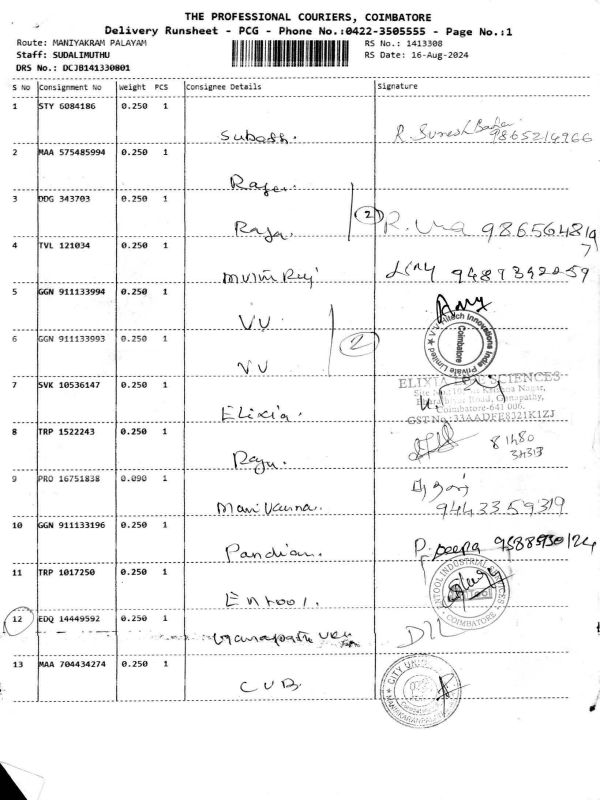 THE PROFESSIONAL COURIERS, COIMBATORE
Delivery Runsheet - PCG - Phone No.:0422-3505555 - Page No.:1
Route: MANIYAKRAM PALAYAM
RS No.: 1413308
Staff: SUDALIMUTHU
RS Date: 16-Aug-2024
DRS No.: DCJB141330801
S No Consignment No Weight PCS Consignee Details Signature
1 STY 6084186 0.250 1
Subash. R. Suresh Babu
9865214966
2 MAA 575485994 0.250 1
Raja.
3 DDG 343703 0.250 1
2
Raja. R. 986564819
7
4 TVL 121034 0.250 1
9489342259
5 GGN 911133994 0.250 1
VV.
Altech Innovations India Private Limited
Coimbatore
6 GGN 911133993 0.250 1
2
VV
7 SVK 10536147 0.250 1
ELIXIA SCIENCES
Krishna Nagar,
Road, Ganapathy,
Coimbatore-641 006.
Elixia.
8 TRP 1522243 0.250 1
Raju. 81480
34313
9 PRO 16751838 0.090 1
Manikanna. 9443359319
10 GGN 911133196 0.250 1
Pandian. P. Deepa
11 TRP 1017250 0.250 1
INDUSTRIAL
COIMBATORE
Entool.
12 EDQ 14449592 0.250 1
13 MAA 704434274 0.250 1
CITY UNION
CUB